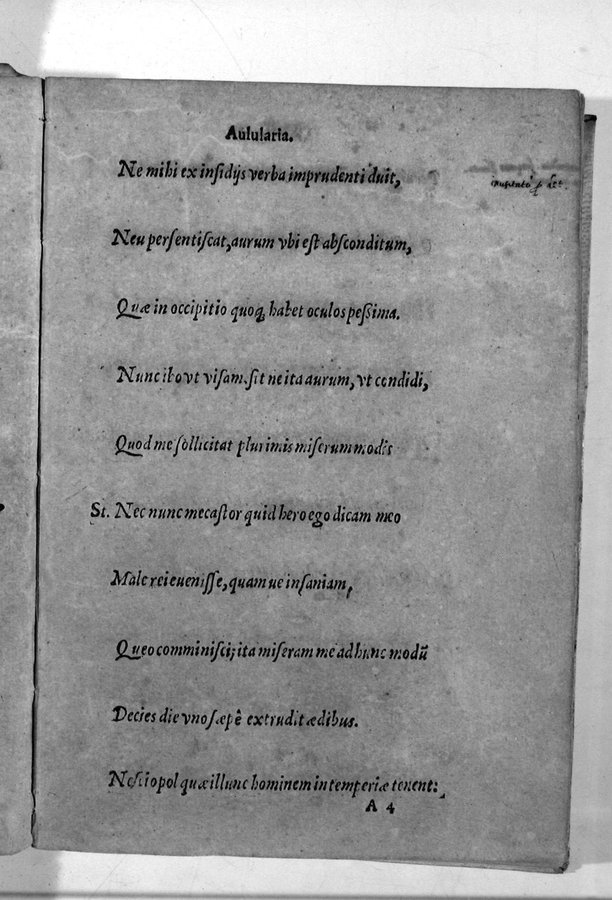 Aulularia.
Ne mihi ex inſidijs verba imprudenti duit,
Neu perſentiſcat, aurum vbi eſt abſconditum,
Quæ in occipitio quoq; habet oculos peſsima.
Nunc ibo vt viſam. ſit ne ita aurum, vt condidi,
Quod me ſollicitat plurimis miſerum modis
St. Nec nunc mecaſtor quid hero ego dicam meo
Malæ rei eueniſſe, quam ue inſaniam,
Queo comminiſci; ita miſeram me ad hunc modū
Decies die vno ſæpê extrudit ædibus.
Neſcio pol quæ illunc hominem intemperiæ tenent:
A 4